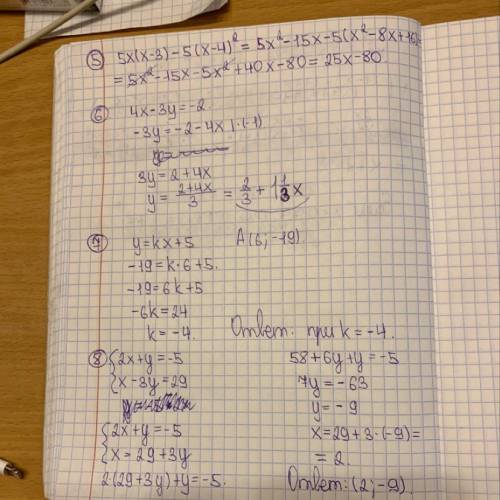 ⑤ 5x(x-3)-5(x-4)² = 5x²-15x-5(x²-8x+16)=
= 5x²-15x-5x²+40x-80 = 25x-80
⑥ 4x-3y=-2
-3y=-2-4x |·(-1)
3y=2+4x
y= (2+4x)/3 = 2/3 + 1 1/3 x
⑦ y=kx+5 A(6;-19)
-19=k·6+5.
-19=6k+5
-6k=24
k=-4. Ответ: при k=-4.
⑧ {2x+y=-5
{x-3y=29
{2x+y=-5
{x=29+3y
2·(29+3y)+y=-5.
58+6y+y=-5
7y=-63
y=-9
x=29+3·(-9)=
=2.
Ответ: (2;-9).